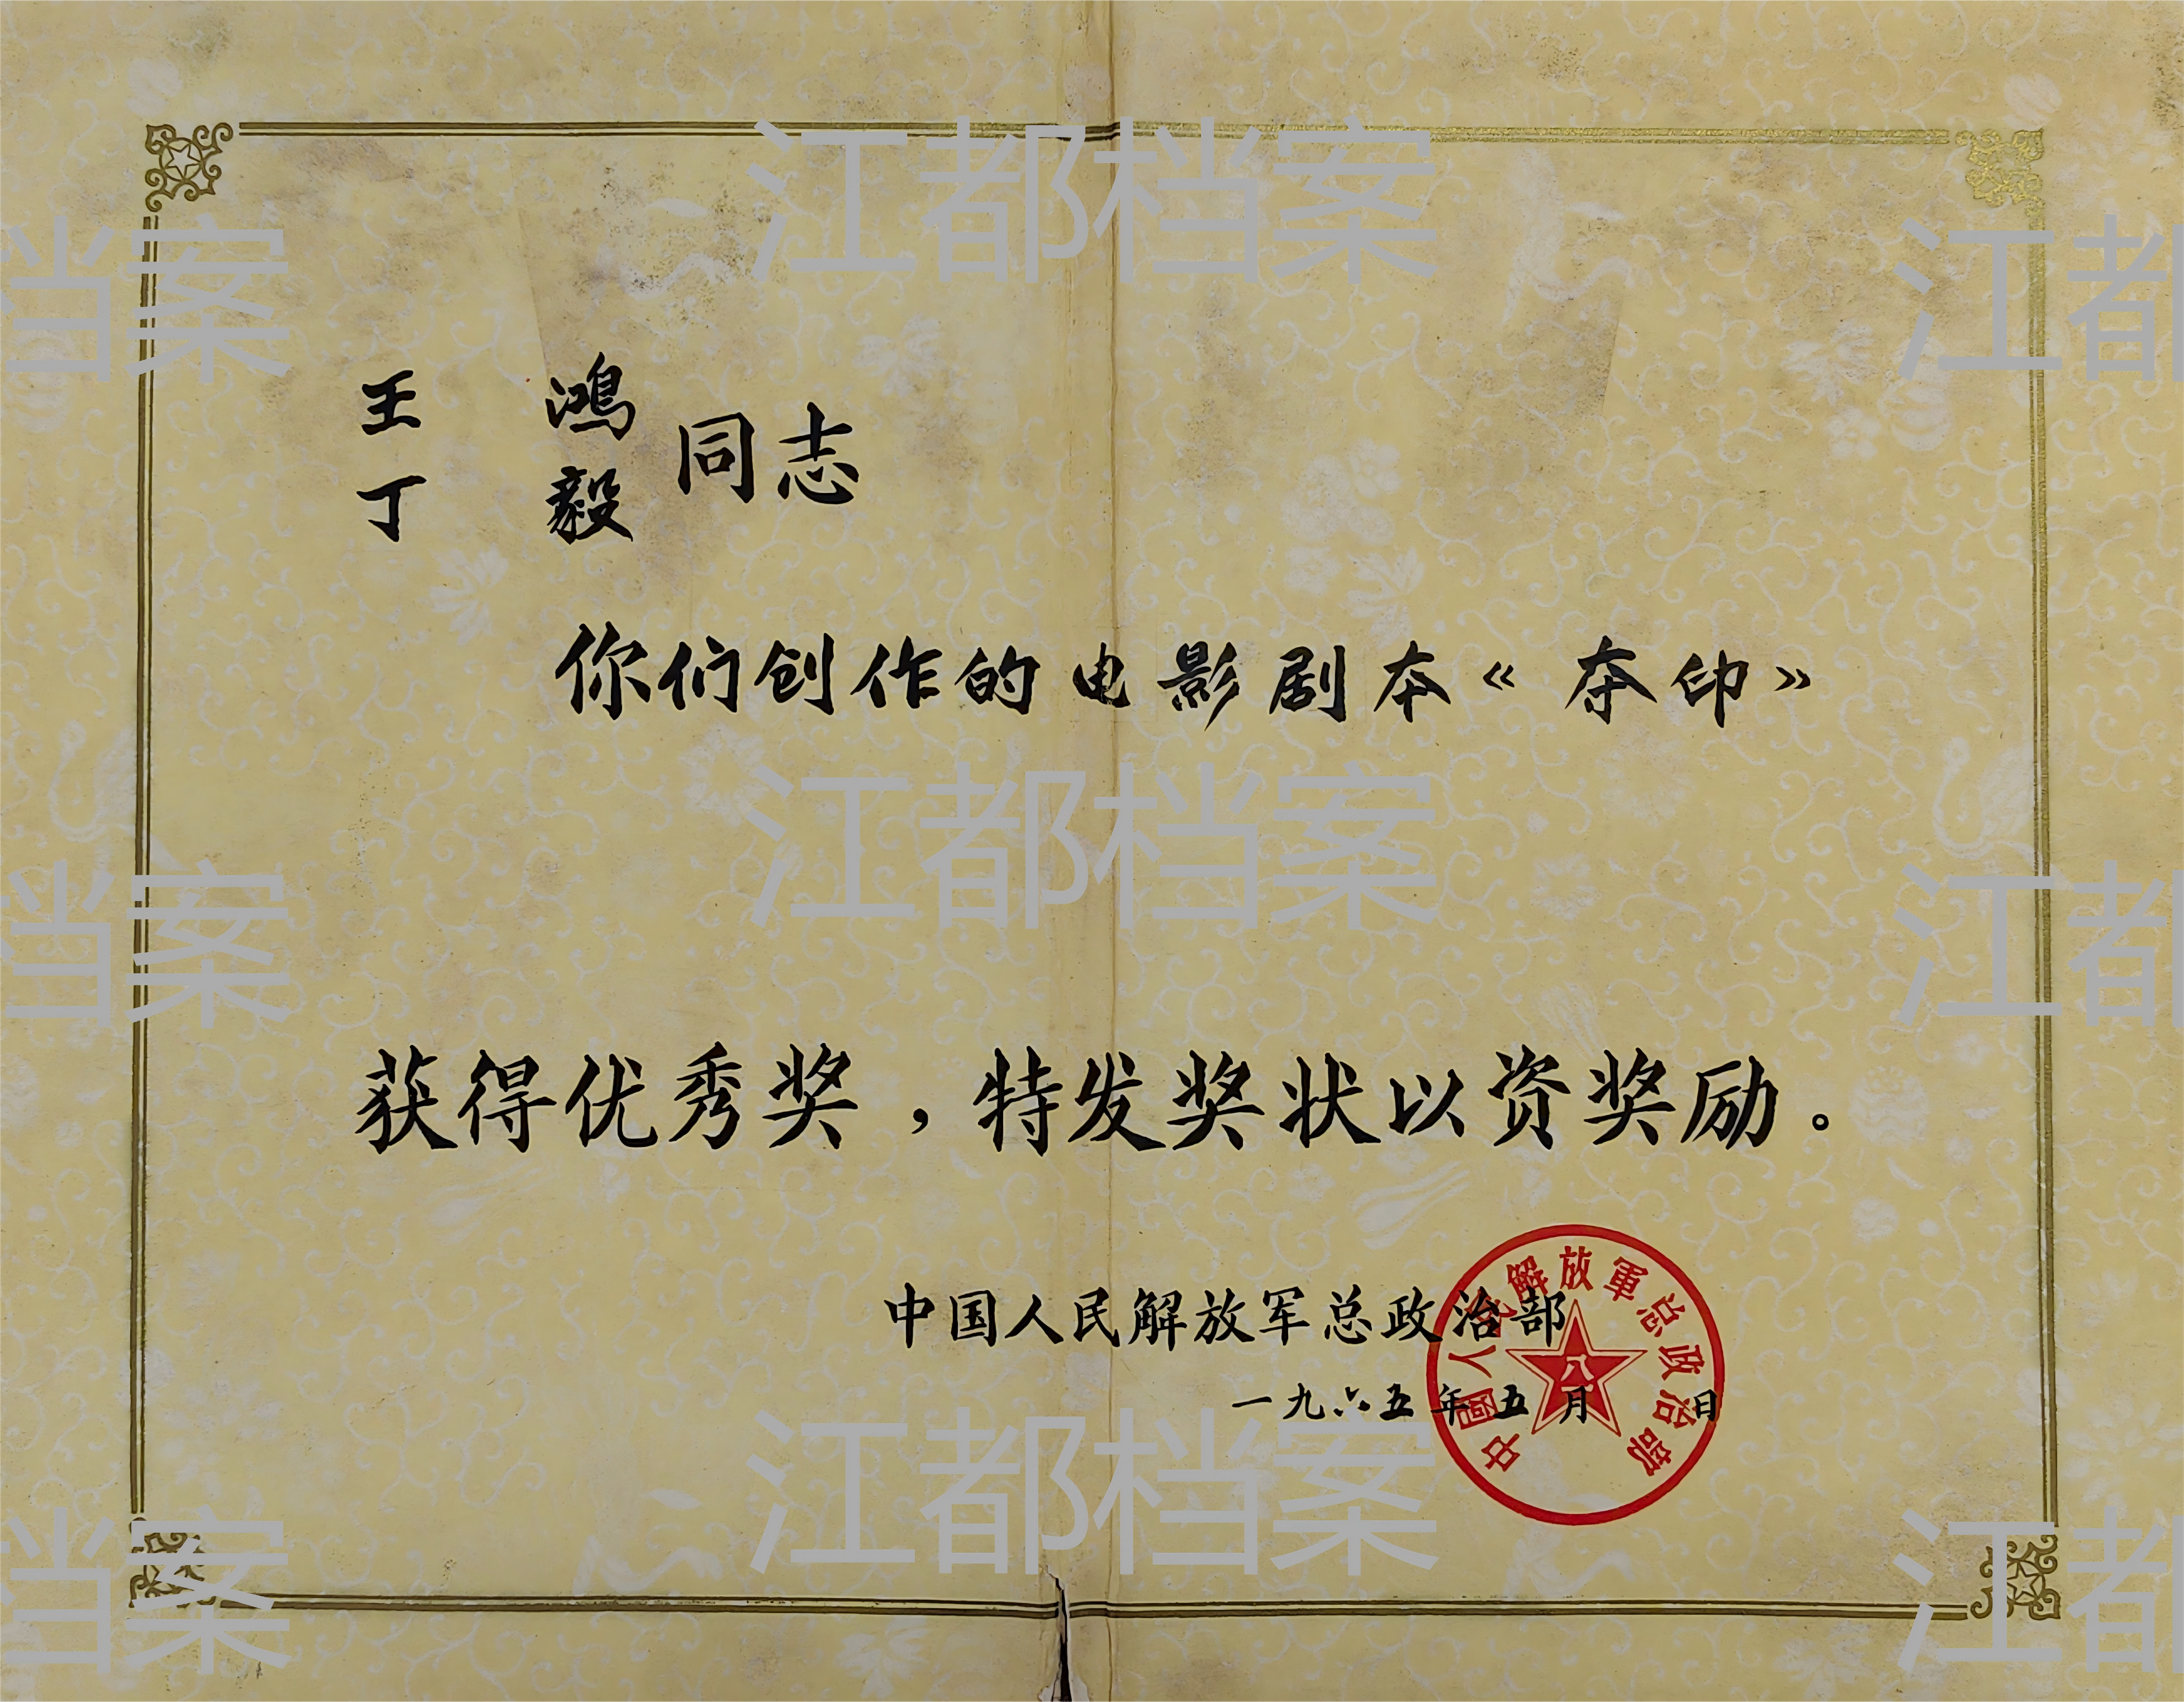 王 鸿
丁 毅
同志
你们创作的电影剧本《夺印》
获得优秀奖，特发奖状以资奖励。
中国人民解放军总政治部
一九六五年五月 日
中國人民解放軍总政治部
八一
江都档案
江都档案
江都档案
档案
档案
档案
江都
江都
江都